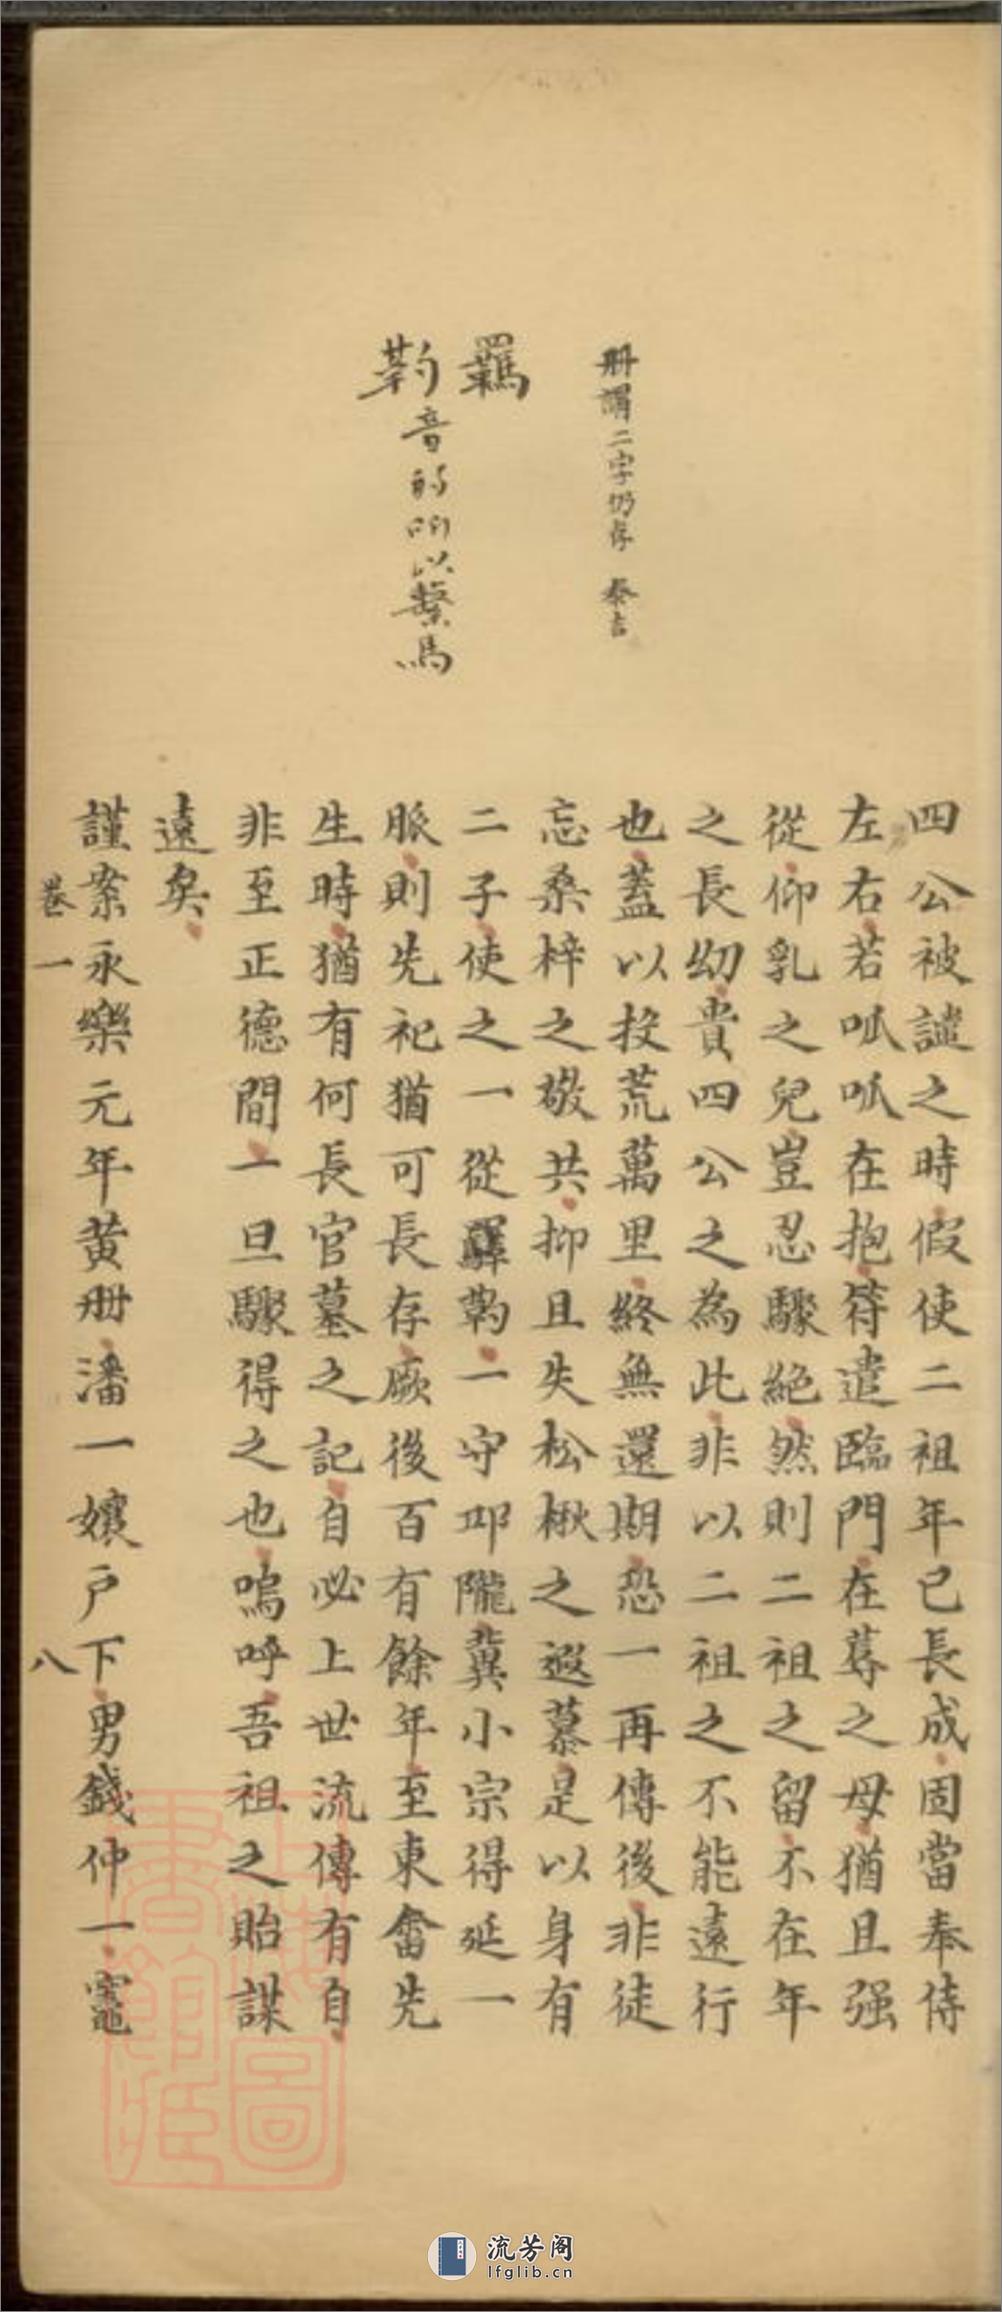 册謂二字仍存　泰吉
羈
靮
音的所以縶馬
四公被譴之時假使二祖年已長成固當奉侍
左右若呱呱在抱符遣臨門在蓐之母猶且强
從仰乳之兒豈忍驟絕然則二祖之留不在年
之長幼貴四公之為此非以二祖之不能遠行
也蓋以投荒萬里終無還期恐一再傳後非徒
忘桑梓之敬共抑且失松楸之遐慕是以身有
二子使之一從羈靮一守邛隴冀小宗得延一
脈則先祀猶可長存厥後百有餘年至東畬先
生時猶有何長官墓之記自必上世流傳有自
非至正德間一旦驟得之也嗚呼吾祖之貽謀
遠矣
謹案永樂元年黄册潘一孃戶下男錢仲一竈
卷一
八
上海圖書館藏
流芳阁
lfglib.cn